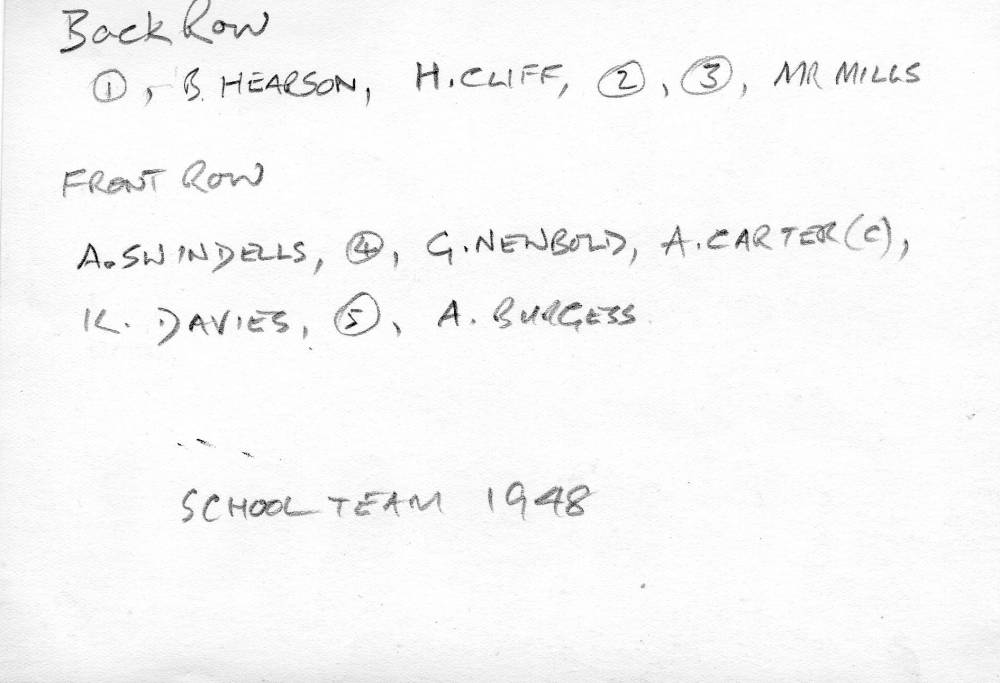 Back Row
①, B. HEARSON, H. CLIFF, ②, ③, MR MILLS
FRONT ROW
A. SWINDELLS, ④, G. NEWBOLD, A. CARTER (C),
K. DAVIES, ⑤, A. BURGESS
SCHOOL TEAM 1948